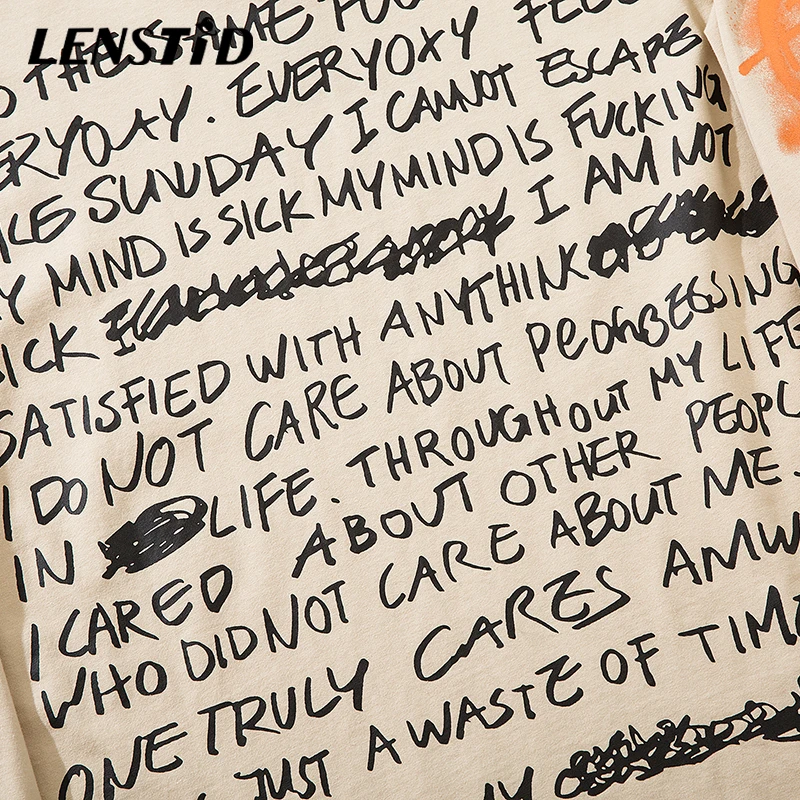 LENSTiD
THE SAME FUC
ERYOAY. EVERYOXY FEE
KE SUUDAY I CANNOT ESCAPE
Y MIND IS SICK MY MIND IS FUCKING
SICK I AM NOT
SATISFIED WITH ANYTHIN
I DO NOT CARE ABOUT PROGRESSING
IN LIFE. THROUGHOUT MY LIFE
I CARED ABOUT OTHER PEOPL
WHO DID NOT CARE ABOUT ME.
ONE TRULY CARES AMW
JUST A WASTE OF TIME